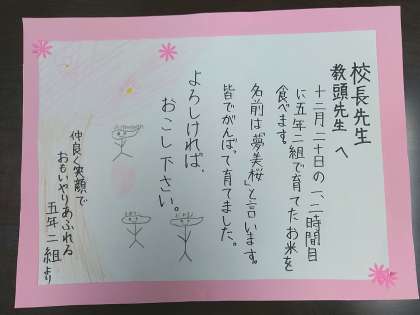 校長先生
教頭先生 へ
十二月二十日の一、二時間目
に五年二組で育てたお米を
食べます。
名前は「夢美桜」と言います。
皆でがんばって育てました。
よろしければ、
おこし下さい。
仲良く笑顔で
おもいやりあふれる
五年二組より